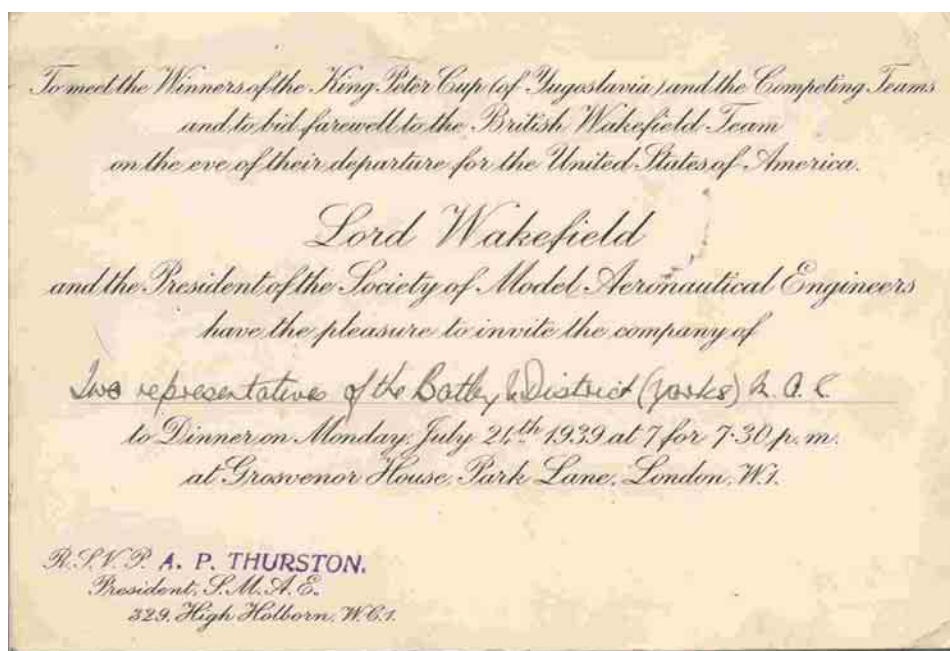 To meet the Winners of the King Peter Cup (of Yugoslavia) and the Competing Teams
and to bid farewell to the British Wakefield Team
on the eve of their departure for the United States of America.
Lord Wakefield
and the President of the Society of Model Aeronautical Engineers
have the pleasure to invite the company of
Two representatives of the Batley & District (Yorks) M.A.C.
to Dinner on Monday, July 24th 1939 at 7 for 7.30 p.m.
at Grosvenor House, Park Lane, London, W.1.
R.S.V.P. A. P. THURSTON.
President, S.M.A.E.
329, High Holborn, W.C.1.